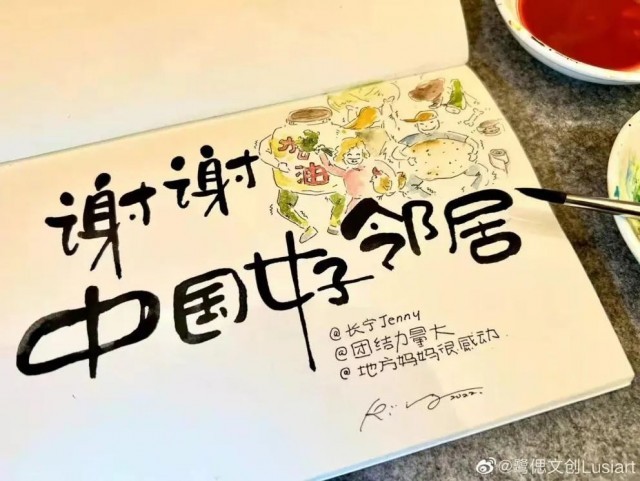 加
油
谢谢
中国好邻居
@长宁Jenny
@团结力量大
@地方妈妈很感动
2022.
@鹭偲文创Lusiart